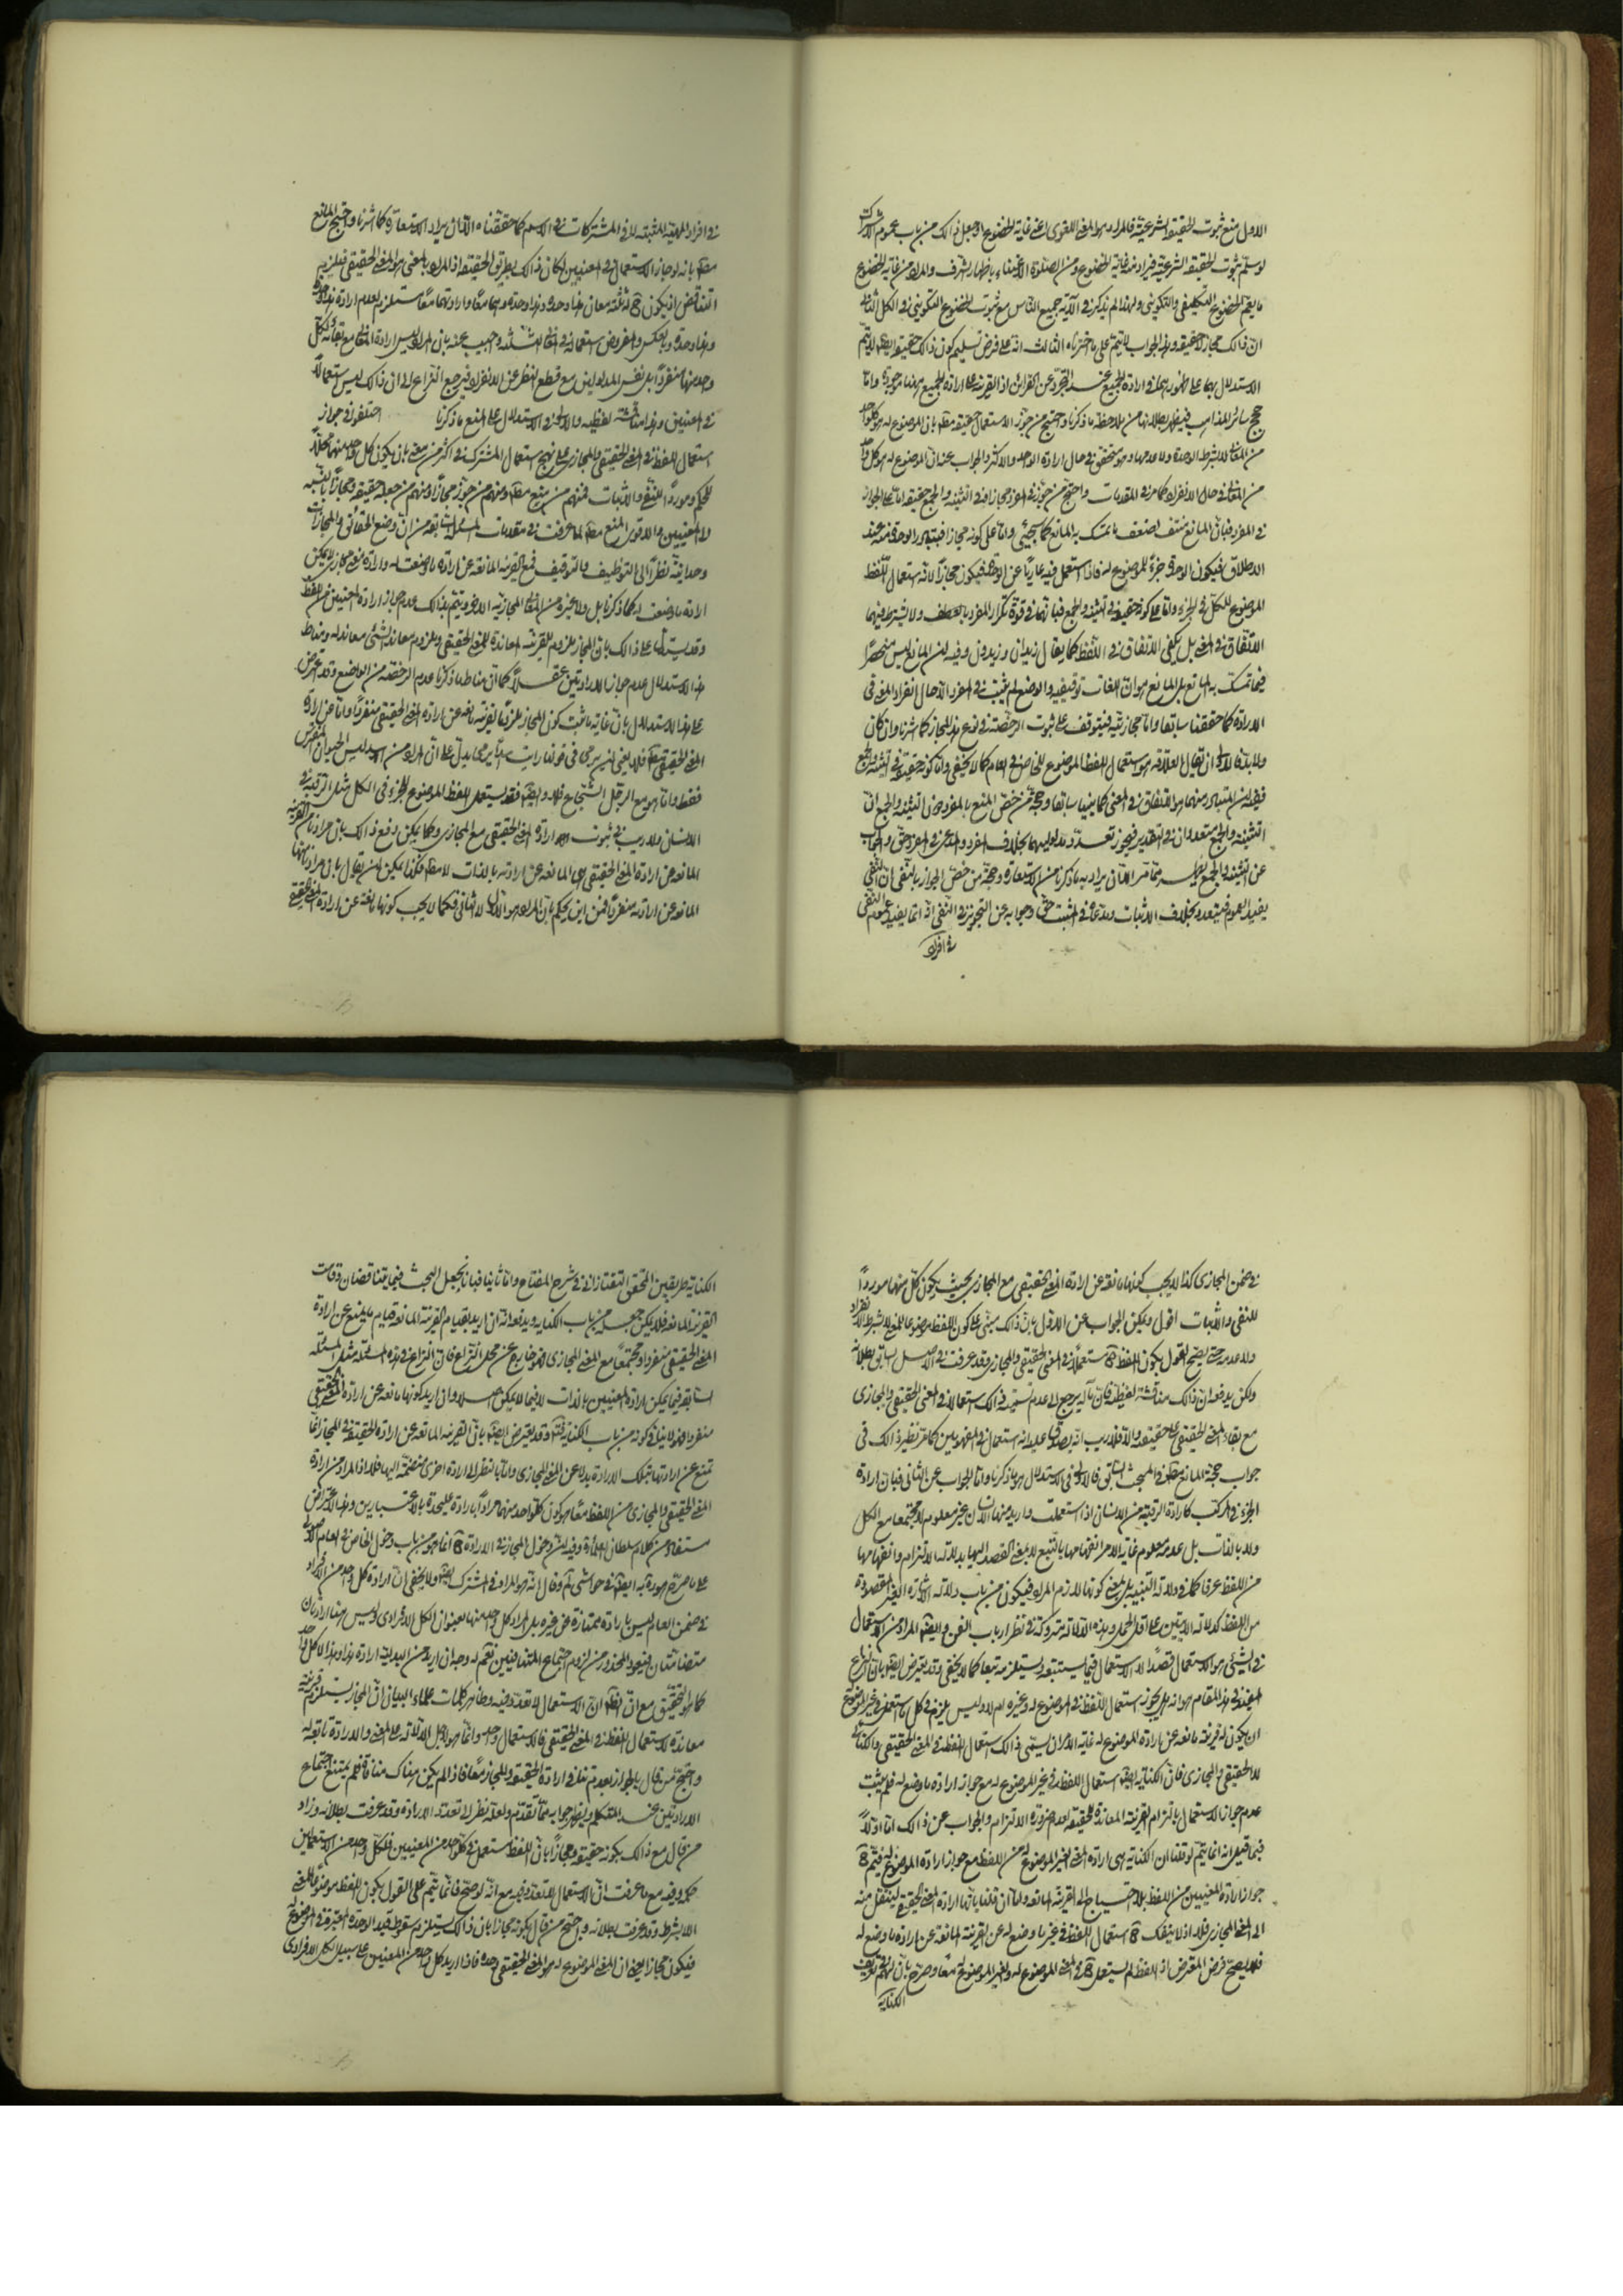 الاول منع ثبوت الحقيقة الشرعية فالمراد هو المعنى اللغوى اعنى غاية الخضوع او يجعل ذالك من باب عموم الاشتراك
لو سلم ثبوت الحقيقة الشرعية فيراد منه غاية الخضوع ومن الصلوة الاعتناء باظهار الشرف والمراد من غاية الخضوع
ما يعم الخضوع التكليفى والتكوينى ولهذا لم يذكر فى الآية جميع الناس مع ثبوت الخضوع التكوينى فى الكل الثانى
ان ذالك مجاز لا حقيقة وهذا الجواب لا يتم على ما اخترناه الثالث انه على فرض تسليم كون ذالك حقيقة ايضا لا يتم
الاستدلال بها على ظهور بها فى ارادة الجميع عند التجرد عن القرائن اذ القرينة على ارادة الجميع هنا موجودة واما
حجج سائر المذاهب فيظهر بطلانها من ملاحظة ما ذكرنا واحتج من جوز الاستعمال حقيقة مطلقا بان الموضوع له هو كل واحد
من المعانى لا بشرط الوحدة ولا عدمها وهو متحقق فى حال ارادة الواحد والاكثر والجواب عنه ان الموضوع له هو كل واحد
من المعانى فى حال الانفراد كما مر فى المقدمات واحتج من جوز فى المفرد مجازا وفى التثنية والجمع حقيقة اما على الجواز
فى المفرد فبان المانع منتف لضعف ما تمسك به المانع كما سيجيئ واما على كونه مجازا فبتبادر الوحدة منه عند
الاطلاق فيكون الوحدة جزءً للموضوع له فاذا استعمل فيه عاريًا عن الوحدة فيكون مجازًا لانه استعمال اللفظ
الموضوع للكل فى الجزء واما على كونه حقيقة فى التثنية والجمع فبانهما فى قوة تكرار المفرد بالعطف ولا يشترط فيهما
الاتفاق فى المعنى بل يكفى الاتفاق فى اللفظ كما يقال زيدان وزيدون وفيه ان المانع ليس منحصرًا
فيما تمسك به المانع بل المانع هو ان اللغات توقيفية والوضع لم يثبت فى المفرد الا حال انفراد المعنى فى
الارادة كما حققنا سابقا واما مجازيته فيتوقف على ثبوت الرخصة فى نوع هذا المجاز كما اشرنا وان كان
ولا بد فالاولى ان يقال العلاقة هو استعمال اللفظ الموضوع للخاص فى العام كما لا يخفى واما كونه حقيقة فى التثنية والجمع
ففيه ان المتبادر منهما هو الاتفاق فى المعنى كما بينا سابقا وحجة من خص المنع بالمفرد ان التثنية والجمع ان
التثنية والجمع متعددان فى التقدير فيجوز تعدد مدلوليهما بخلاف المفرد والمدعى فى المفرد حق والجواب
عن التثنية والجمع يظهر مما مر الا ان يراد به ما ذكرنا من الاستعارة وحجة من خص الجواز بالنفى ان النفى
يفيد العموم فيتعدد بخلاف الاثبات وما ادعاه فى المثبت حق وجوابه عن التجويز فى النفى انه انما يفيد عموم النفى
فى افراد
فى افراد المهية المثبتة لا فى المشتركات فى الاسم كما حققناه الا ان يراد الاستعارة كما اشرنا واحتج المانع
مطلقا بانه لو جاز الاستعمال فى المعنيين لكان ذالك بطريق الحقيقة اذ المراد بالمعنى هو المعنى الحقيقى فيلزم
التناقض اذ يكون له ثلثة معان هذا وحده وهذا وحده وهما معًا وارادتهما معًا مستلزم لعدم ارادة هذا وحده
وهذا وحده وبالعكس والمفروض استعماله فى المعانى الثلثة واجيب عنه بان المراد ليس ارادة المعانى مع بقائه لكل
واحد منها منفردًا بل نفس المدلولين مع قطع النظر عن الانفراد فيرجع النزاع الى ان ذالك ليس استعمالًا
فى المعنيين وهذا مناقشة لفظية والاولى فى الاستدلال على المنع ما ذكرنا اختلفوا فى جواز
استعمال اللفظ فى المعنى الحقيقى والمجازى على نهج استعمال المشترك فى اكثر من معنى بان يكون كل واحد منهما محلًا
للحكم وموردًا للنفى والاثبات فمنهم من منع مطلقا ومنهم من جوز مجازًا ومنهم من جعله حقيقة ومجازًا بالنسبة
الى المعنيين والاقوى المنع مطلقا لما عرفت فى مقدمات المسئلة السابقة من ان وضع الحقائق والمجازات
وحدانية نظرًا الى التوظيف والتوقيف فمع القرينة المانعة عن ارادة ما وضعت له وارادة معنى مجازى لا يمكن
ارادة ما وضعت له كما ذكرنا بل ولا غيره من المعانى المجازية الاخر ويتم بذالك عدم جواز ارادة المعنيين من اللفظ
وقد يستدل على ذالك بان المجاز ملزوم للقرينة المعاندة للمعنى الحقيقى وملزوم معاند الشئ معاند له ومناط
هذا الاستدلال عدم جواز الارادتين عقلًا كما ان مناط ما ذكرنا عدم الرخصة من الواضع وقد اعترض
على هذا الاستدلال بان غاية ما ثبت كون المجاز ملزومًا لقرينة مانعة عن ارادة المعنى الحقيقى منفردًا واما عن ارادة
المعنى الحقيقى مطلقا فلا يعنى ان يرمى فى قولنا رايت اسدا يرمى يدل على ان المراد من الاسد ليس الحيوان المفترس
فقط واما هو مع الرجل الشجاع فلا وايضا فقد يستعمل اللفظ الموضوع للجزء فى الكل مثل الرقبة فى
الانسان ولا ريب فى ثبوت ارادة المعنى الحقيقى مع المجازى وكما يمكن دفع ذالك بان مرادنا من القرينة
المانعة عن ارادة المعنى الحقيقى هى المانعة عن ارادته بالذات لا مطلقا فكذا يمكن ان يقال بان مرادنا منها
المانعة عن ارادته منفردًا فمن اين يحكم بان المراد هو الاول لا الثانى فكما لا يجب كونها مانعة عن ارادة المعنى الحقيقى
فى ضمن المجازى كذا لا يجب كونها مانعة عن ارادة المعنى الحقيقى مع المجازى بحيث يكون كل منهما موردًا
للنفى والاثبات اقول ويمكن الجواب عن الاول بان ذالك مبنى على كون اللفظ موضوعا للمعنى لا بشرط الانفراد
ولا عدمه حتى يصح القول بكون اللفظ مستعملًا فى المعنى الحقيقى والمجازى وقد عرفت فى الاصل السابق بطلانه
ولكن يدفعه ان ذالك مناقشة لفظية فان مآله يرجع الى عدم تسمية ذالك استعمالا فى المعنى الحقيقى والمجازى
مع بقاء المعنى الحقيقى على حقيقته والا فلا ريب انه يصدق عليه انه استعمال فى المفهومين كما مر نظير ذالك فى
جواب حجة المانع مطلقا فى المبحث السابق فالاولى فى الاستدلال هو ما ذكرنا واما الجواب عن الثانى فبان ارادة
الجزء فى المركب كارادة الرقبة من الانسان اذا استعملت واريد منها الانسان غير معلوم لا مجتمعا مع الكل
ولا بالذات بل عدمه معلوم غاية الامر انفهامها بالتبع لا بمعنى القصد اليها بدلالته الالتزام وانفهامها
من اللفظ عرفا كما فى دلالة التنبيه بل بمعنى كونها لازم المراد فيكون من باب دلالة الاشارة الغير المقصودة
من اللفظ كدلالة الآيتين على اقل الحمل وهذه الدلالة متروكة فى نظر ارباب الفن وايضا المراد من الاستعمال
فى الشئ هو الاستعمال قصدًا لا الاستعمال فيما يستتبعه ويستلزمه تبعا كما لا يخفى وقد يعترض ايضا بان النزاع
المفيد فى هذا المقام هو انه هل يجوز استعمال اللفظ فى الموضوع له وغيره ام لا وليس يلزم فى كل ما استعمل فى غير الموضوع
ان يكون له قرينة مانعة عن ارادة الموضوع له غاية الامر ان يسمى ذالك استعمال اللفظ فى المعنى الحقيقى والكنائى
لا الحقيقى والمجازى فان الكناية ايضا استعمال اللفظ فى غير الموضوع له مع جواز ارادة ما وضع له فلم يثبت
عدم جواز الاستعمال بالتزام القرينة المعاندة للحقيقة لعدم ضرورة الالتزام والجواب عن ذالك اما اولًا
فبما قيل انه انما يتم لو قلنا ان الكناية هى ارادة المعنى الغير الموضوع له من اللفظ مع جواز ارادة الموضوع له فيتم
جواز ارادة المعنيين من اللفظ بلا احتياج الى القرينة المانعة واما ان قلنا بانها ارادة المعنى الحقيقى لينتقل منه
الى المعنى المجازى فلا اذ لا ينفك استعمال اللفظ فى غير ما وضع له عن القرينة المانعة عن ارادة ما وضع له
فلا يصح فرض المعترض اذ اللفظ لم يستعمل فى المعنى الموضوع له والغير الموضوع له معًا وصرح بان لهم فى تعريف
الكناية
الكناية طريقين المحقق التفتازانى فى شرح المفتاح واما ثانيا فبانا نجعل البحث فيما يتناقضان وقامت
القرينة المانعة فلا يمكن جعله من باب الكناية ويدفعه انه ان اريد بقيام القرينة المانعة قيام ما يمنع عن ارادة
المعنى الحقيقى منفردا ومجتمعًا مع المعنى المجازى فهو خارج عن محل النزاع فان النزاع فى هذه المسئلة مثل المسئلة
السابقة فيما يمكن ارادة المعنيين بالذات لا فيما لا يمكن اصلا وان اريد كونها مانعة عن ارادة المعنى الحقيقى
منفردا فهو لا ينافى كونه من باب الكناية وقد يعترض ايضا بان القرينة المانعة عن ارادة الحقيقة فى المجاز انما
تمنع عن ارادتها بتلك الارادة بدلا عن المعنى المجازى واما بالنظر الى ارادة اخرى منضمة اليها فلا اذ المراد من ارادة
المعنى الحقيقى والمجازى من اللفظ معا هو كون كل واحد منهما مرادًا بارادة عليحدة بالاعتبارين وهذا الاعتراض
مستفاد من كلام سلطان العلماء وفيه ان دخول المجاز فى الارادة انما هو من باب دخول الخاص فى العام الاصولى
على ما صرح هو به ايضا فى حواشى لم وقال انه هو المراد فى المشترك ايضا ولا يخفى ان ارادة كل واحد من الافراد
فى ضمن العام ليس بارادة ممتازة عن غيره بل المراد كل واحد منها بعنوان الكل الافرادى وليس هنا ارادتان
متضامتان فيعود المحذور من لزوم اجتماع المتنافيين نعم له وجه ان اريد من البدلية ارادة هذا وهذا لا كل واحد
كما هو التحقيق مع ان الاستعمال لا تعدد فيه وظاهر كلمات علماء البيان ان المجاز يستلزم قرينة
معاندة لاستعمال اللفظ فى المعنى الحقيقى فالاستعمال واحد وانما هو لاجل الدلالة على المعنى والارادة تابعة له
واحتج من قال بالجواز بعدم تنافى ارادة الحقيقة والمجاز معًا فاذا لم يكن هناك منافاة فلم يمتنع اجتماع
الارادتين عند المتكلم ويظهر جوابه مما تقدم ولعله نظر الى تعدد الارادة وقد عرفت بطلانه وزاد
من قال مع ذالك بكونه حقيقة ومجازًا بان اللفظ مستعمل فى كل واحد من المعنيين فلكل واحد من الاستعمالين
حكمه وفيه مع ما عرفت ان الاستعمال لا تعدد فيه مع انه لو صح فانما يتم على القول بكون اللفظ موضوعًا للمعنى
لا بشرط وقد عرفت بطلانه واحتج من قال بكونه مجازا بان ذالك يستلزم سقوط قيد الوحدة المعتبرة فى الموضوع له
فيكون مجازا يعنى ان المعنى الموضوع له هو المعنى الحقيقى وحده فاذا اريد كل واحد من المعنيين على سبيل الكل الافرادى